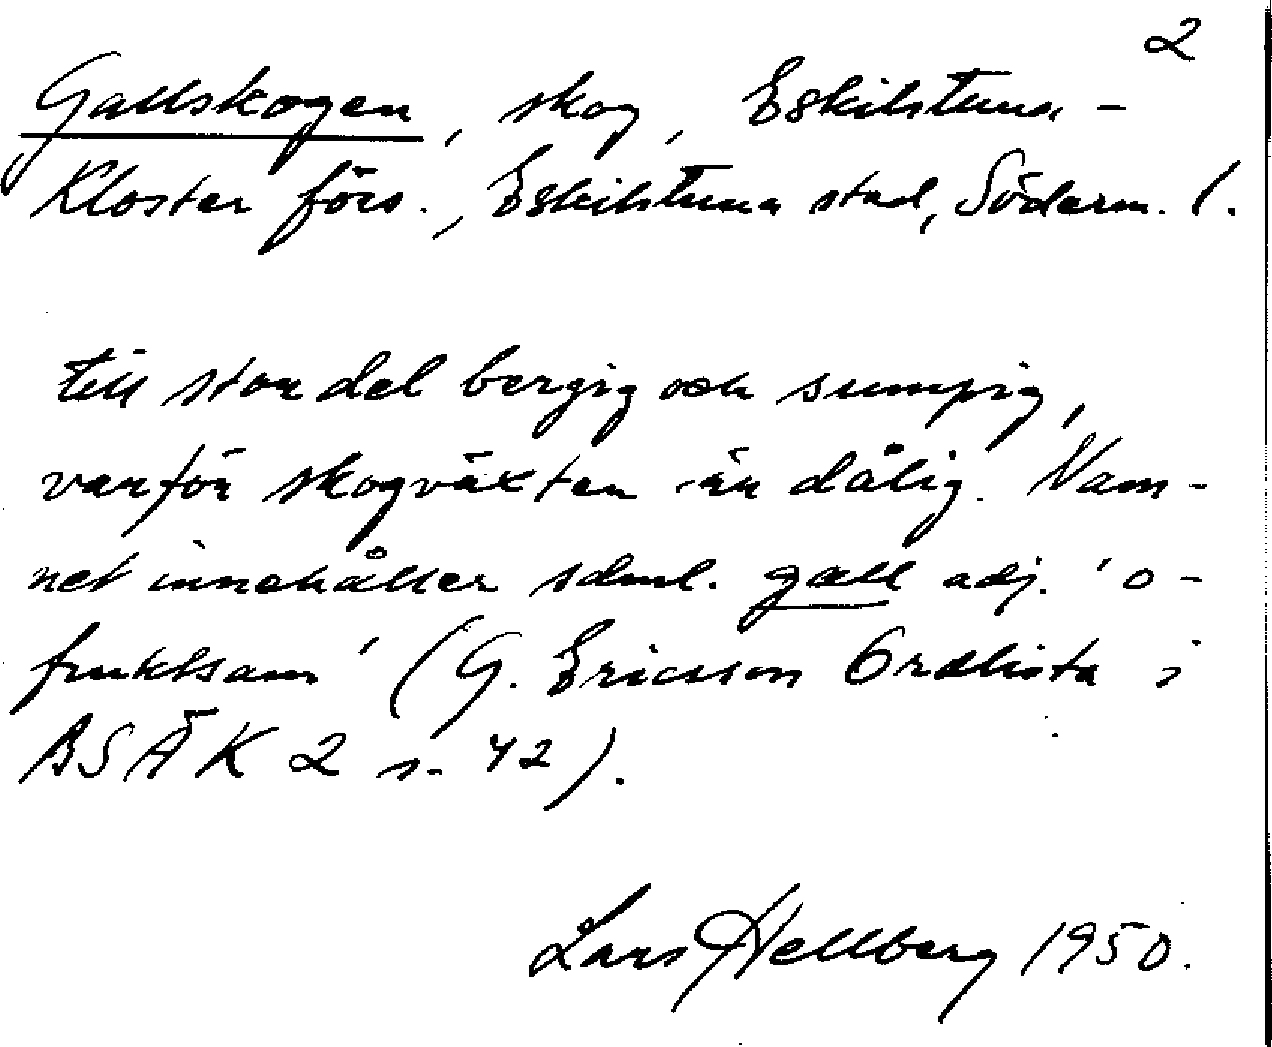 2
Gallskogen, skog, Eskilstuna-
Kloster förs., Eskilstuna stad, Söderm. l.
till stor del bergig och sumpig,
varför skogväxten är dålig. Nam-
net innehåller sdml. gall adj. 'o-
fruktsam' (G. Ericsson Ordlista i
BSÄK 2 s. 42).
Lars Hellberg 1950.